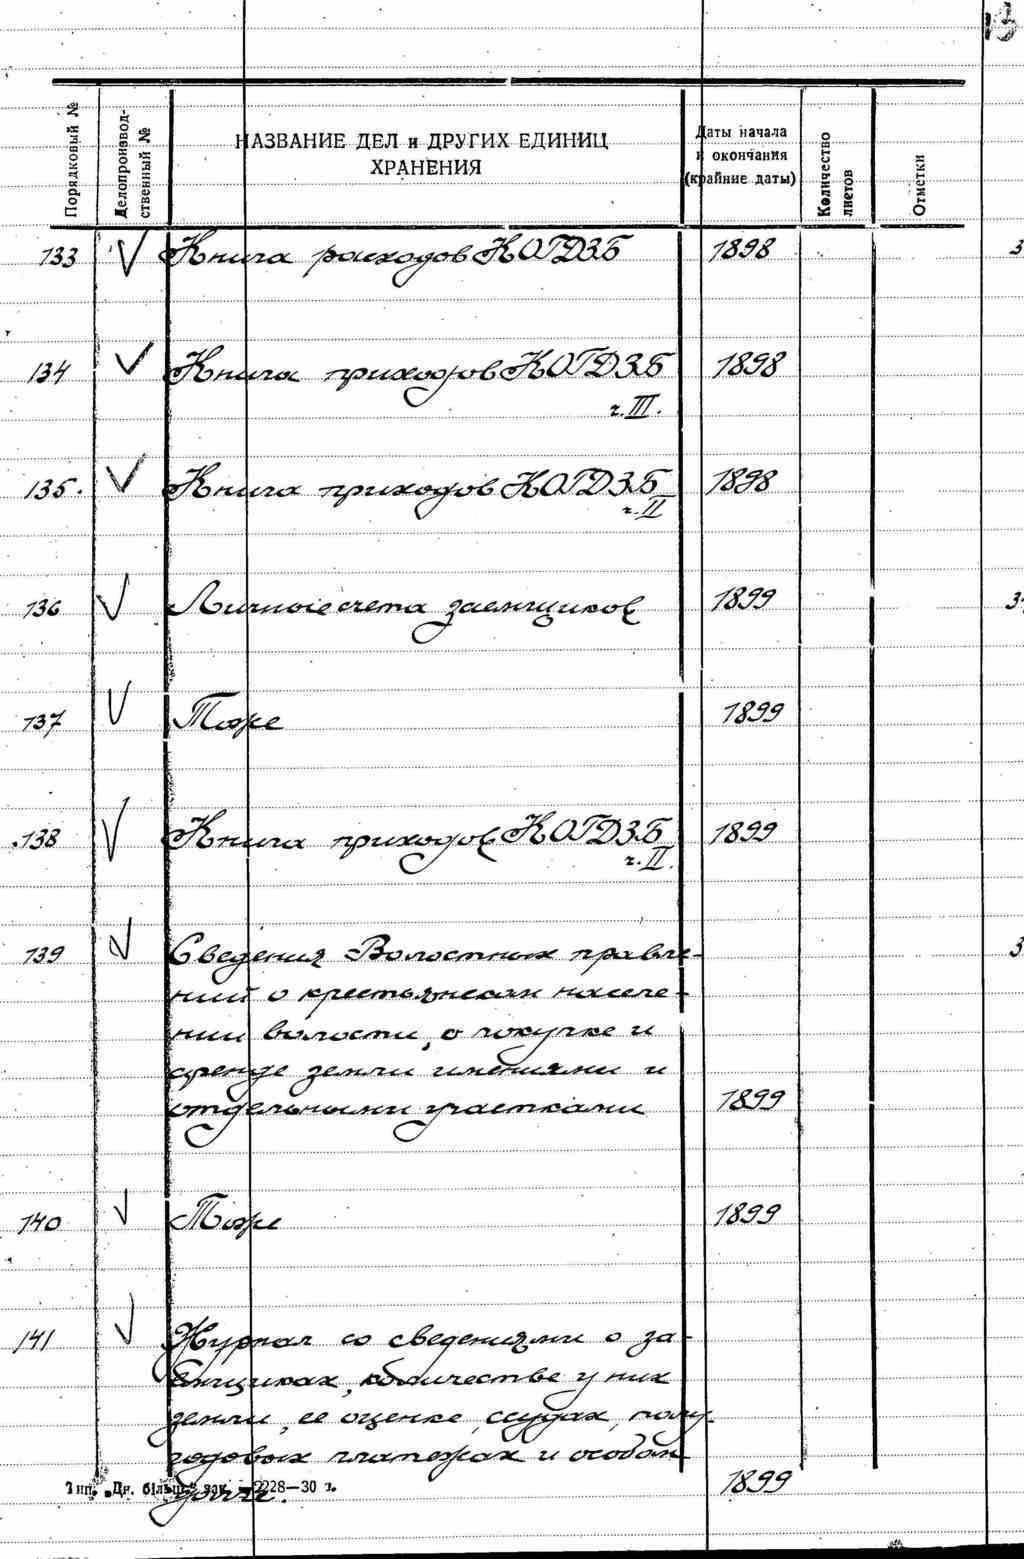 13
Порядковый №
Делопроизвод-
ственный №
НАЗВАНИЕ ДЕЛ и ДРУГИХ ЕДИНИЦ
ХРАНЕНИЯ
Даты начала
и окончания
(крайние даты)
Количество
листов
Отметки
133 Книга расходов КОГДЗБ 1898
134 Книга приходов КОГДЗБ 1898
ч. III.
135. Книга приходов КОГДЗБ 1898
ч. II
136 Личные счета заемщиков 1899
137 Тоже 1899
138 Книга приходов КОГДЗБ 1899
ч. II.
139 Сведения Волостных правле-
ний о крестьянском населе-
нии волости, о покупке и
аренде земли имениями и
отдельными участками 1899
140 Тоже 1899
141 Журнал со сведениями о за-
емщиках, количестве у них
земли, ее оценке, ссудах, полу-
годовых платежах и особом
долге. 1899
Тип. „Дн. більш." зак. 2228—30 т.